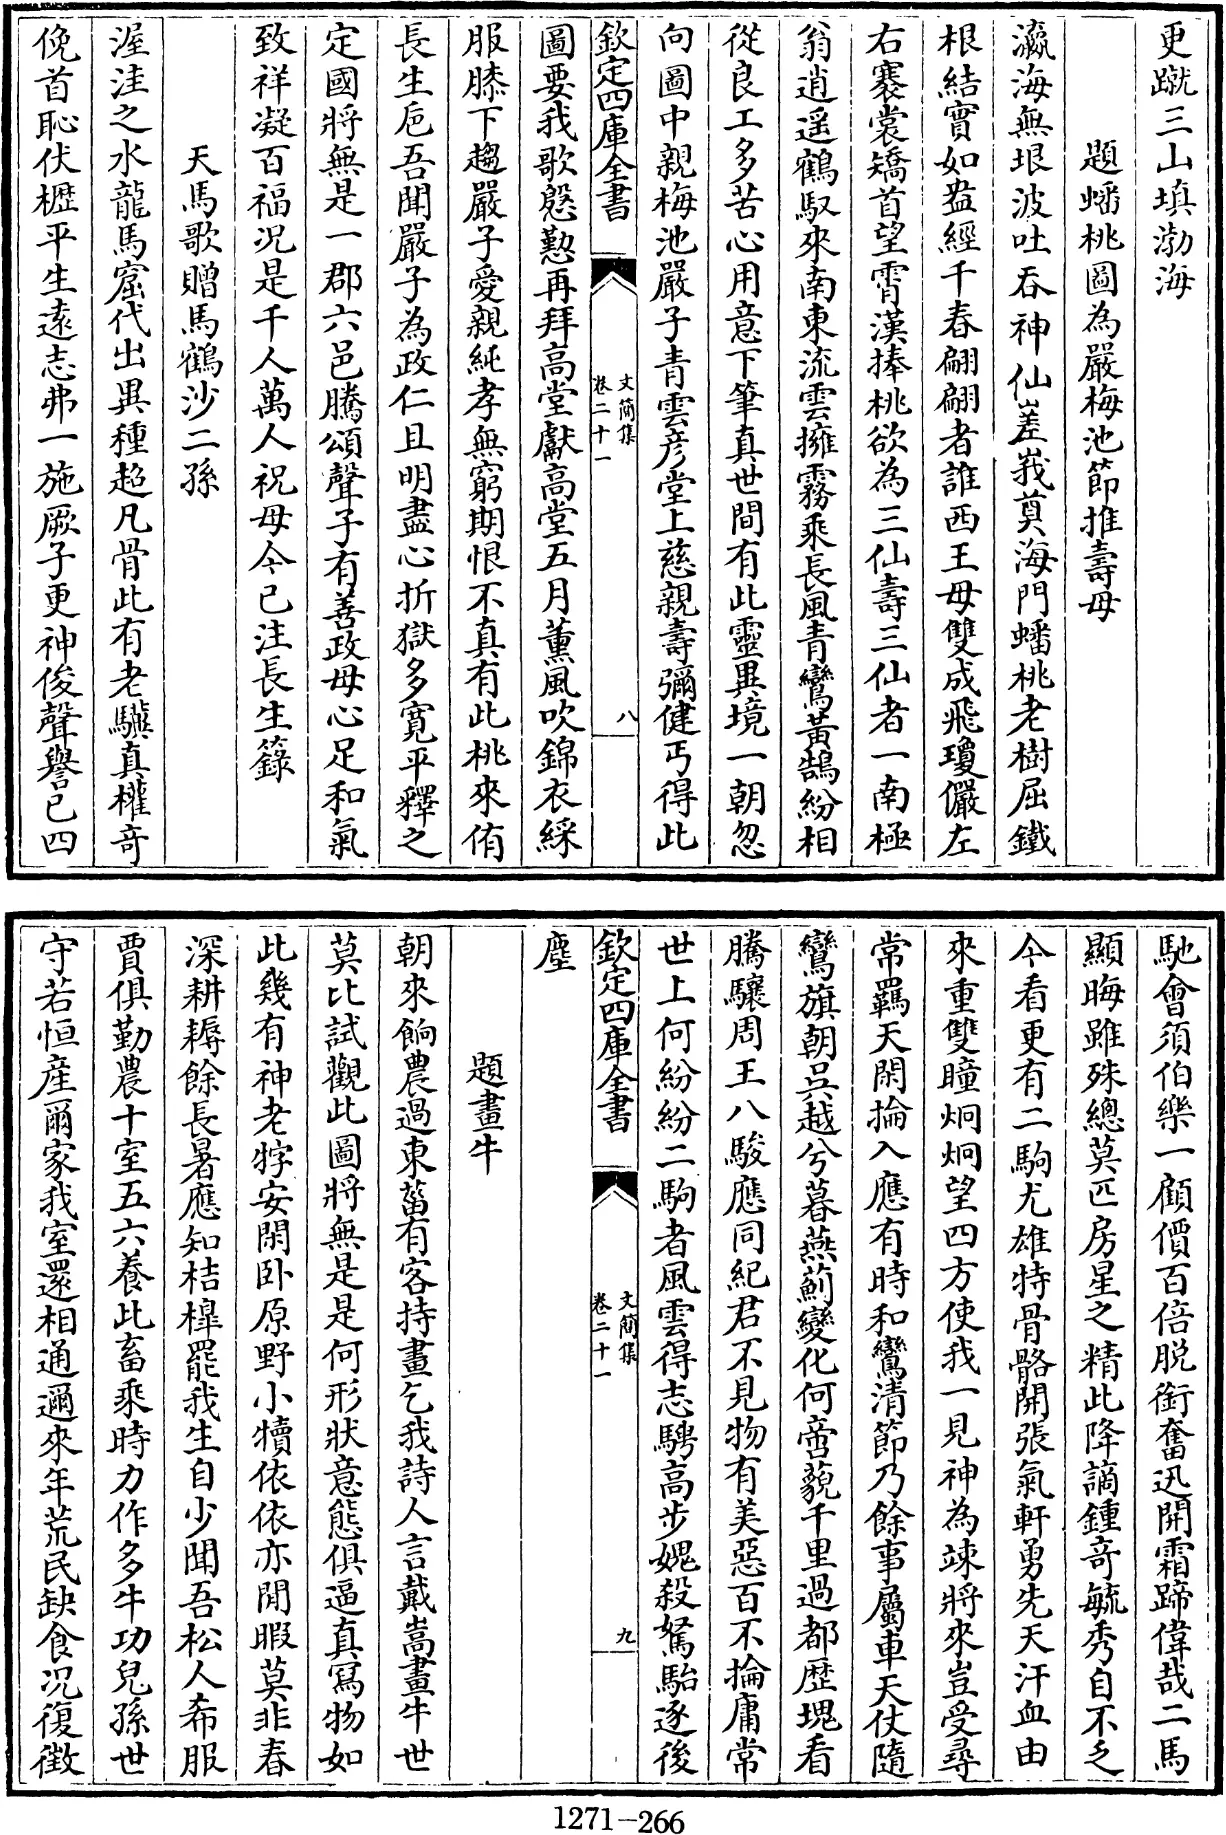 更蹴三山填渤海
題蟠桃圖為嚴梅池節推壽母
瀛海無垠波吐吞神仙嵳峩奠海門蟠桃老樹屈鐵
根結實如盎經千春翩翩者誰西王母雙成飛瓊儼左
右褰裳矯首望霄漢捧桃欲為三仙壽三仙者一南極
翁逍遥鶴馭來南東流雲擁霧乘長風青鸞黃鵠紛相
從良工多苦心用意下筆真世間有此靈異境一朝忽
向圖中親梅池嚴子青雲彦堂上慈親壽彌健丐得此
欽定四庫全書
文簡集
卷二十一
八
圖要我歌慇懃再拜高堂獻高堂五月薰風吹錦衣綵
服膝下趨嚴子愛親純孝無窮期恨不真有此桃來侑
長生巵吾聞嚴子為政仁且明盡心折獄多寛平釋之
定國將無是一郡六邑騰頌聲子有善政母心足和氣
致祥凝百福况是千人萬人祝母今已注長生籙
天馬歌贈馬鶴沙二孫
渥洼之水龍馬窟代出異種超凡骨此有老驥真權奇
俛首恥伏櫪平生逺志弗一施厥子更神俊聲譽已四
馳會須伯樂一顧價百倍脱銜奮迅開霜蹄偉哉二馬
顯晦雖殊總莫匹房星之精此降謫鍾奇毓秀自不乏
今看更有二駒尤雄特骨骼開張氣軒勇先天汗血由
來重雙瞳炯炯望四方使我一見神為竦將來豈受尋
常羈天閑掄入應有時和鸞清節乃餘事屬車天仗隨
鸞旗朝呉越兮暮燕薊變化何啻藐千里過都歴塊看
騰驤周王八駿應同紀君不見物有美惡百不掄庸常
世上何紛紛二駒者風雲得志騁高步媿殺駑駘逐後
欽定四庫全書
文簡集
卷二十一
九
塵
題畫牛
朝來餉農過東菑有客持畫乞我詩人言戴嵩畫牛世
莫比試觀此圖將無是是何形狀意態俱逼真冩物如
此幾有神老牸安閑卧原野小犢依依亦閒暇莫非春
深耕耨餘長暑應知桔橰罷我生自少聞吾松人希服
賈俱勤農十室五六養此畜乘時力作多牛功兒孫世
守若恒産爾家我室還相通邇來年荒民缺食况復徵
1271-266